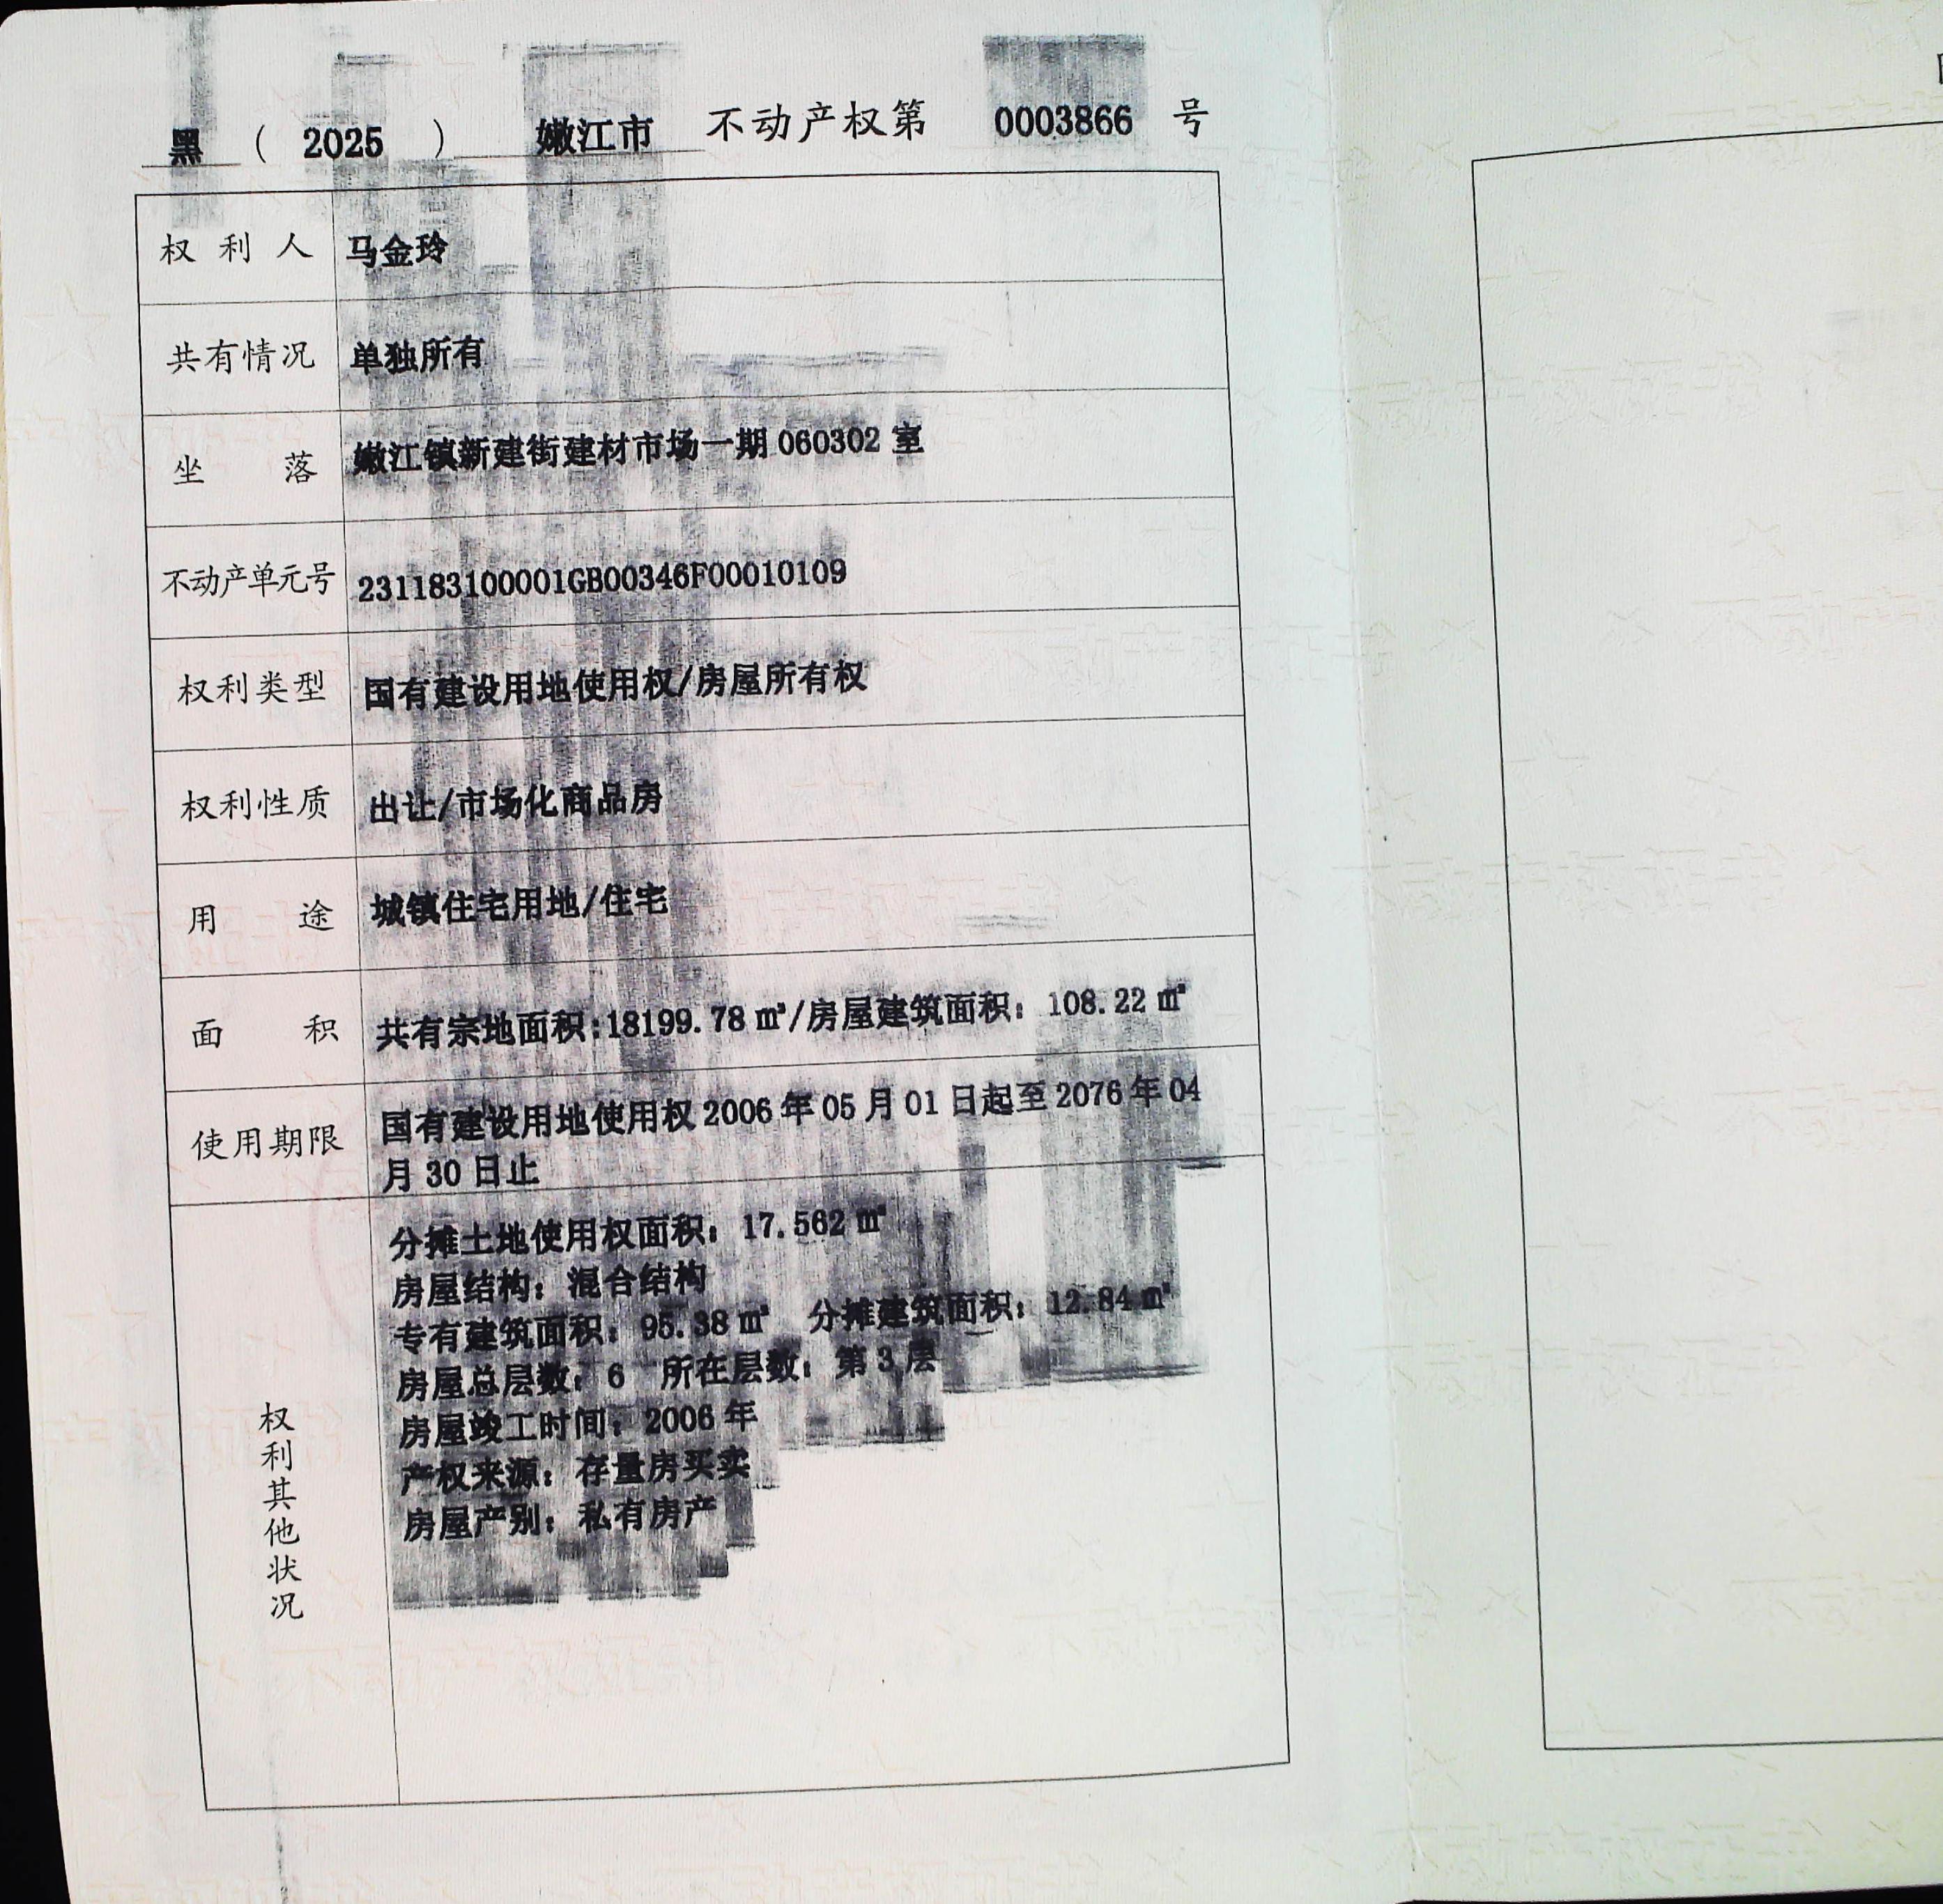 黑 （ 2025 ） 嫩江市 不动产权第 0003866 号
权利人 马金玲
共有情况 单独所有
坐落 嫩江镇新建街建材市场一期 060302 室
不动产单元号 231183100001GB00346F00010109
权利类型 国有建设用地使用权/房屋所有权
权利性质 出让/市场化商品房
用途 城镇住宅用地/住宅
面积 共有宗地面积:18199.78 ㎡/房屋建筑面积：108.22 ㎡
使用期限 国有建设用地使用权 2006 年 05 月 01 日起至 2076 年 04
月 30 日止
权利其他状况
分摊土地使用权面积：17.562 ㎡
房屋结构：混合结构
专有建筑面积：95.38 ㎡ 分摊建筑面积：12.84 ㎡
房屋总层数：6 所在层数：第 3 层
房屋竣工时间：2006 年
产权来源：存量房买卖
房屋产别：私有房产